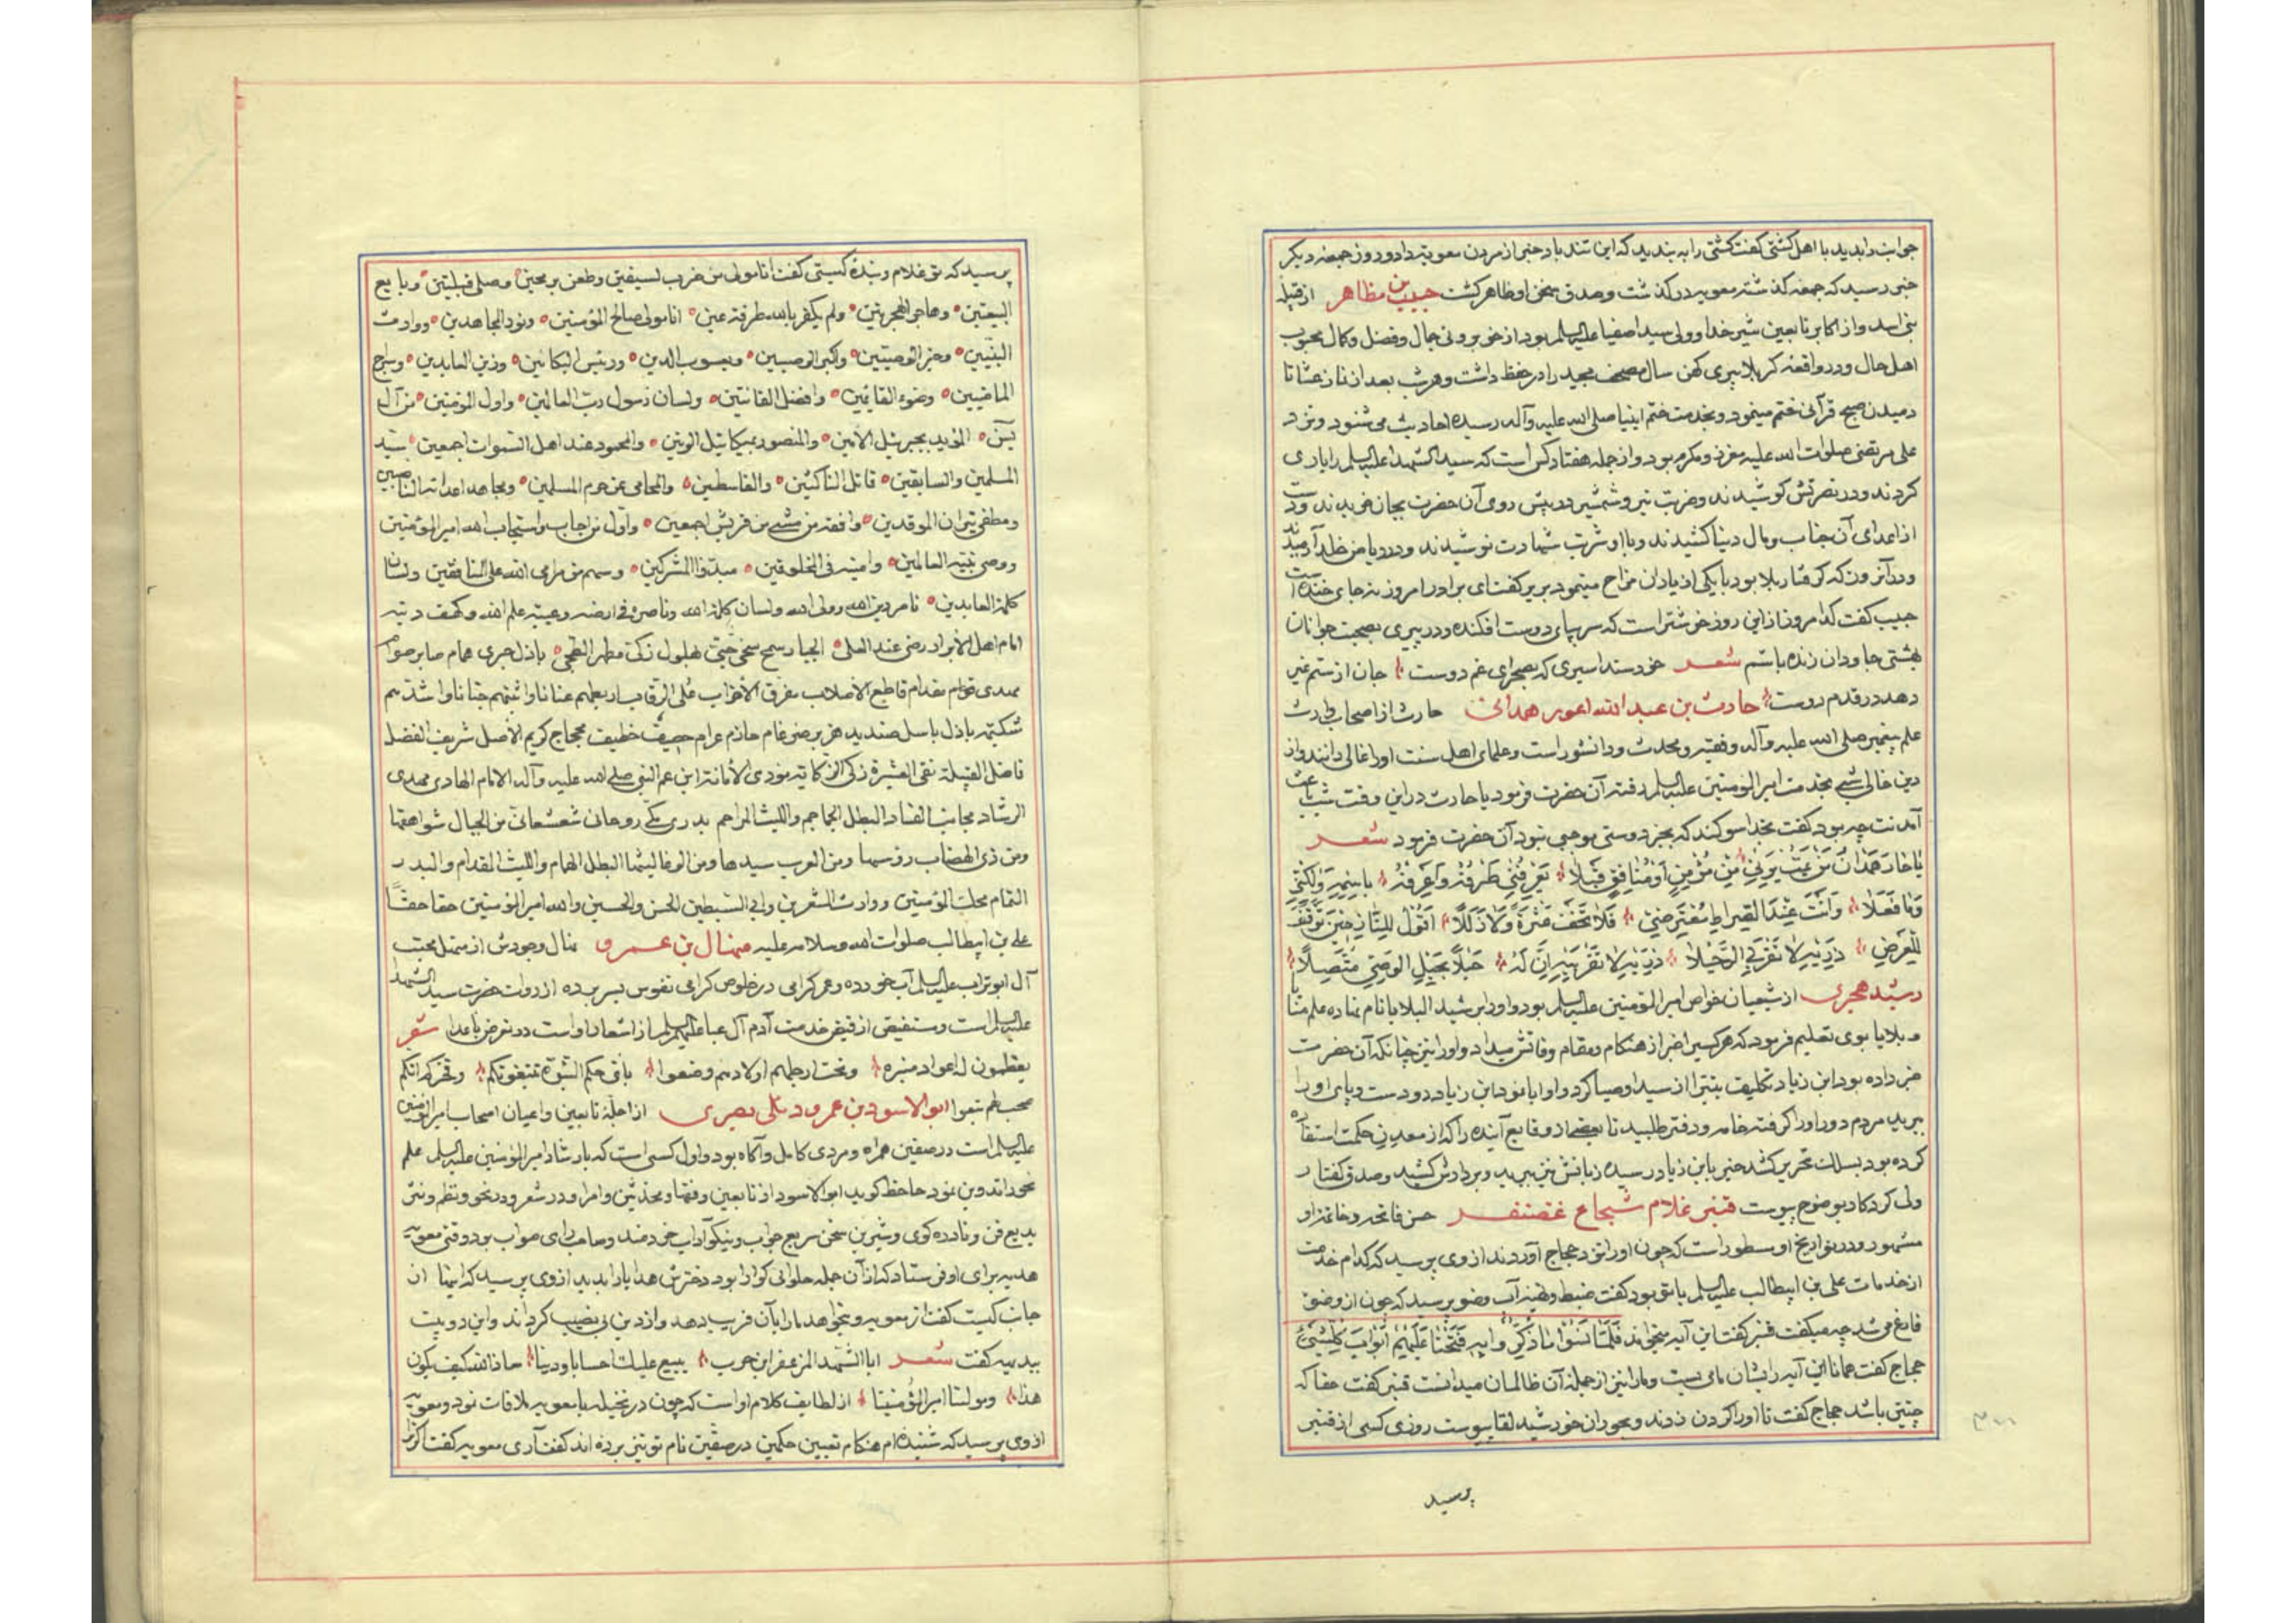 جوانب را بدید با اهل کشتی گفت کشتی را به بندید که این تند باد خبر از مردن معویه داد و روز جمعه دیگر
خبر رسید که جمعه گذشته معویه درگذشت و صدق سخن او ظاهر گشت حبیب بن مظاهر از قبیله
بنی اسد و از اکابر تابعین شیر خدا و ولی سید اصفیا علیه السلم بود از خوبرویی جمال و فضل و کمال محبوب
اهل حال و در واقعه کربلا پیری کهن سال مصحف مجید را در حفظ داشت و هر شب بعد از نماز عشا تا
دمیدن صبح قرآنی ختم مینمود و بخدمت ختم انبیا صلی الله علیه وآله رسیده احادیث می شنود و نزد
علی مرتضی صلوات الله علیه معزز و مکرم بود و از جمله هفتاد کس است که سید الشهدا علیه السلم را یاری
کردند و در نصرتش کوشیدند و ضربت تیر و شمشیر در پیش روی آن حضرت بجان خریدند و دست
از اعدای آن جناب و مال دنیا کشیدند و با او شربت شهادت نوشیدند و در ریاض خلد آرمیدند
و در آنروز که گرفتار بلا بود با یکی از یاران مزاح مینمود بریر گفت ای برادر امروز نه جای خنده است
حبیب گفت کدام روز از این روز خوشتر است که سر بپای دوست افکنده و در پیری بصحبت جوانان
بهشتی جاودان زنده باشم شعر خورسند اسیری که بصحرای غم دوست جان از ستم غیر
دهد در قدم دوست حارث بن عبد الله اعور همدانی حارث از اصحاب وارث
علم پیغمبر صلی الله علیه وآله و فقیه و محدث و دانشور است و علمای اهل سنت او را غالی دانند و از
دین خالی شبی بخدمت امیر المؤمنین علیه السلم رفته آن حضرت فرمود یا حارث در این وقت شب باعث
آمدنت چه بود گفت بخدا سوگند که بجز دوستی موجبی نبود آن حضرت فرمود شعر
یَا حَارَ هَمْدَانَ مَنْ یَمُتْ یَرَنِی مِنْ مُؤْمِنٍ أَوْ مُنَافِقٍ قُبُلَا یَعْرِفُنِی طَرْفُهُ وَأَعْرِفُهُ بِاسْمِهِ وَالْکُنَی
وَمَا فَعَلَا وَأَنْتَ عِنْدَ الصِّرَاطِ مُعْتَرِضِی فَلَا تَخَفْ عَثْرَةً وَلَا زَلَلَا أَقُولُ لِلنَّارِ حِینَ تُوقَفُ
لِلْعَرْضِ ذَرِیهِ لَا تَقْرَبِی الرَّجُلَا ذَرِیهِ لَا تَقْرَبِیهِ إِنَّ لَهُ حَبْلًا بِحَبْلِ الْوَصِیِّ مُتَّصِلَا
رشید هجری از شیعیان خواص امیر المؤمنین علیه السلم بود و او را برشید البلایا نام نهاده علم منایا
و بلایا بوی تعلیم فرمود که هر کس را خبر از هنگام و مقام وفاتش میداد و او را نیز چنانکه آن حضرت
خبر داده بود ابن زیاد تکلیف تبرا از سید اوصیا کرد و او ابا نمود ابن زیاد دو دست و پای او را
ببرید مردم دور او را گرفته خامه و دفتر طلبید تا بعضی از وقایع آینده را که از معدن حکمت استفاده
کرده بود بسلک تحریر کشد خبر بابن زیاد رسیده زبانش نیز ببرید و بر دارش کشید و صدق گفتار
ولی کردگار بوضوح پیوست قنبر غلام شجاع غضنفر حسن فاتحه و خاتمه او
مشهور و در تواریخ او مسطور است که چون او را نزد حجاج آوردند از وی پرسید که کدام خدمت
از خدمات علی بن ابیطالب علیه السلم با تو بود گفت ضبط وظیفه آب وضو پرسید که چون از وضو
فارغ می شد چه میگفت قنبر گفت این آیه میخواند فَلَمَّا نَسُوا مَا ذُکِّرُوا بِهِ فَتَحْنَا عَلَیْهِمْ أَبْوَابَ کُلِّ شَیْءٍ
حجاج گفت همانا این آیه را بشان ما می بست و ما را نیز از جمله آن ظالمان میدانست قنبر گفت حقا که
چنین باشد حجاج گفت تا او را گردن زدند و بحوران خورشید لقا پیوست روزی کسی از قنبر
پرسید
پرسید که تو غلام و بنده کیستی گفت انا مولی من ضرب لسیفین وطعن برمحین وصلی قبلتین وبایع
البیعتین وهاجر الهجرتین ولم یکفر بالله طرفة عین انا مولی صالح المؤمنین ونور المجاهدین ووارث
النبیین وخیر الوصیین واکبر الوصیین ویعسوب الدین ورئیس البکائین وزین العابدین وسراج
الماضیین وضوء القائمین وافضل القانتین ولسان رسول رب العالمین واول المؤمنین من آل
یس المؤید بجبرئیل الامین والمنصور بمیکائیل الوتین والمحمود عند اهل السموات اجمعین سید
المسلمین والسابقین قاتل الناکثین والقاسطین والمحامی عن حرم المسلمین ومجاهد اعدائه الناصبین
ومطفی نیران الموقدین وافخر من مشی من قریش اجمعین واول من اجاب واستجاب الله امیر المؤمنین
ووصی نبیه العالمین وامینه فی المخلوقین مبید المشرکین وسهم من مرامی الله علی المنافقین ولسان
کلمة العابدین ناصر دین الله وولی الله ولسان کلمة الله وناصره فی ارضه وعیبة علم الله وکهف دینه
امام اهل الابرار رضی عنه العلی الجبار سمح سخی حیی بهلول زکی مطهر ابطحی باذل جری همام صابر صوام
مهدی قوام مقدام قاطع الاصلاب مفرق الاحزاب علی الرقاب اربطهم عنانا واثبتهم جنانا واشدهم
شکیمة باذل باسل صندید هزبر ضرغام حازم عزام حصیف خطیب محجاج کریم الاصل شریف الفضل
فاضل القبیلة نقی العشیرة زکی الزکاة مؤدی الامانة ابن عم النبی صلی الله علیه وآله الامام الهادی مهدی
الرشاد مجانب الفساد البطل الجماجم واللیث المزاحم بدری مکی روحانی شعشعانی من الجبال شواهقها
ومن ذی الهضاب رؤسها ومن العرب سیدها ومن الوغا لیثها البطل الهمام واللیث المقدام والبدر
التمام محک المؤمنین ووارث المشعرین وابی السبطین الحسن والحسین والله امیر المؤمنین حقا حقا
علی بن ابیطالب صلوات الله وسلامه علیه منهال بن عمرو نهال وجودش از منهل محبت
آل ابوتراب علیه السلم آب خورده و عمر گرامی در خلوص گرامی نفوس بسر برده از روات حضرت سید الشهدا
علیه السلم است و مستفیض از فیض خدمت آدم آل عبا علیهم السلم از اشعار اوست در تعرض باعدا شعر
یعظمون له اعواد منبره وتحت ارجلهم اولادهم وضعوا بای حکم النبوة تتبعونکم وفخرکم انکم
صحب لهم تبع ابو الاسود بن عمرو دئلی بصری از اجله تابعین و اعیان اصحاب امیر المؤمنین
علیه السلم است در صفین همراه و مردی کامل و آگاه بود و اول کسی است که بارشاد امیر المؤمنین علیه السلم علم
نحو را تدوین نمود جاحظ گوید ابو الاسود از تابعین و فقها و محدثین و امرا و در شعر و در نحو و نظم و نثر
بدیع فن و نادره گوی و شیرین سخن سریع جواب و نیکو آداب خردمند و صاحب رای صواب بود وقتی معویه
هدیه برای او فرستاد که از آن جمله حلوائی گوارا بود دخترش هدایا را بدید از وی پرسید که اینها از
جانب کیست گفت از معویه و میخواهد ما را بآن فریب دهد و از دین بی نصیب گرداند و این دو بیت
ببدیهه گفت شعر ابا الشهد المزعفر ابن حرب نبیع علیک احسابا ودینا معاذ الله کیف یکون
هذا ومولانا امیر المؤمنینا از لطایف کلام او است که چون در نخیله با معویه ملاقات نمود و معویه
از وی پرسید که شنیده ام هنگام تعیین حکمین در صفین نام تو نیز برده اند گفت آری معویه گفت اگر